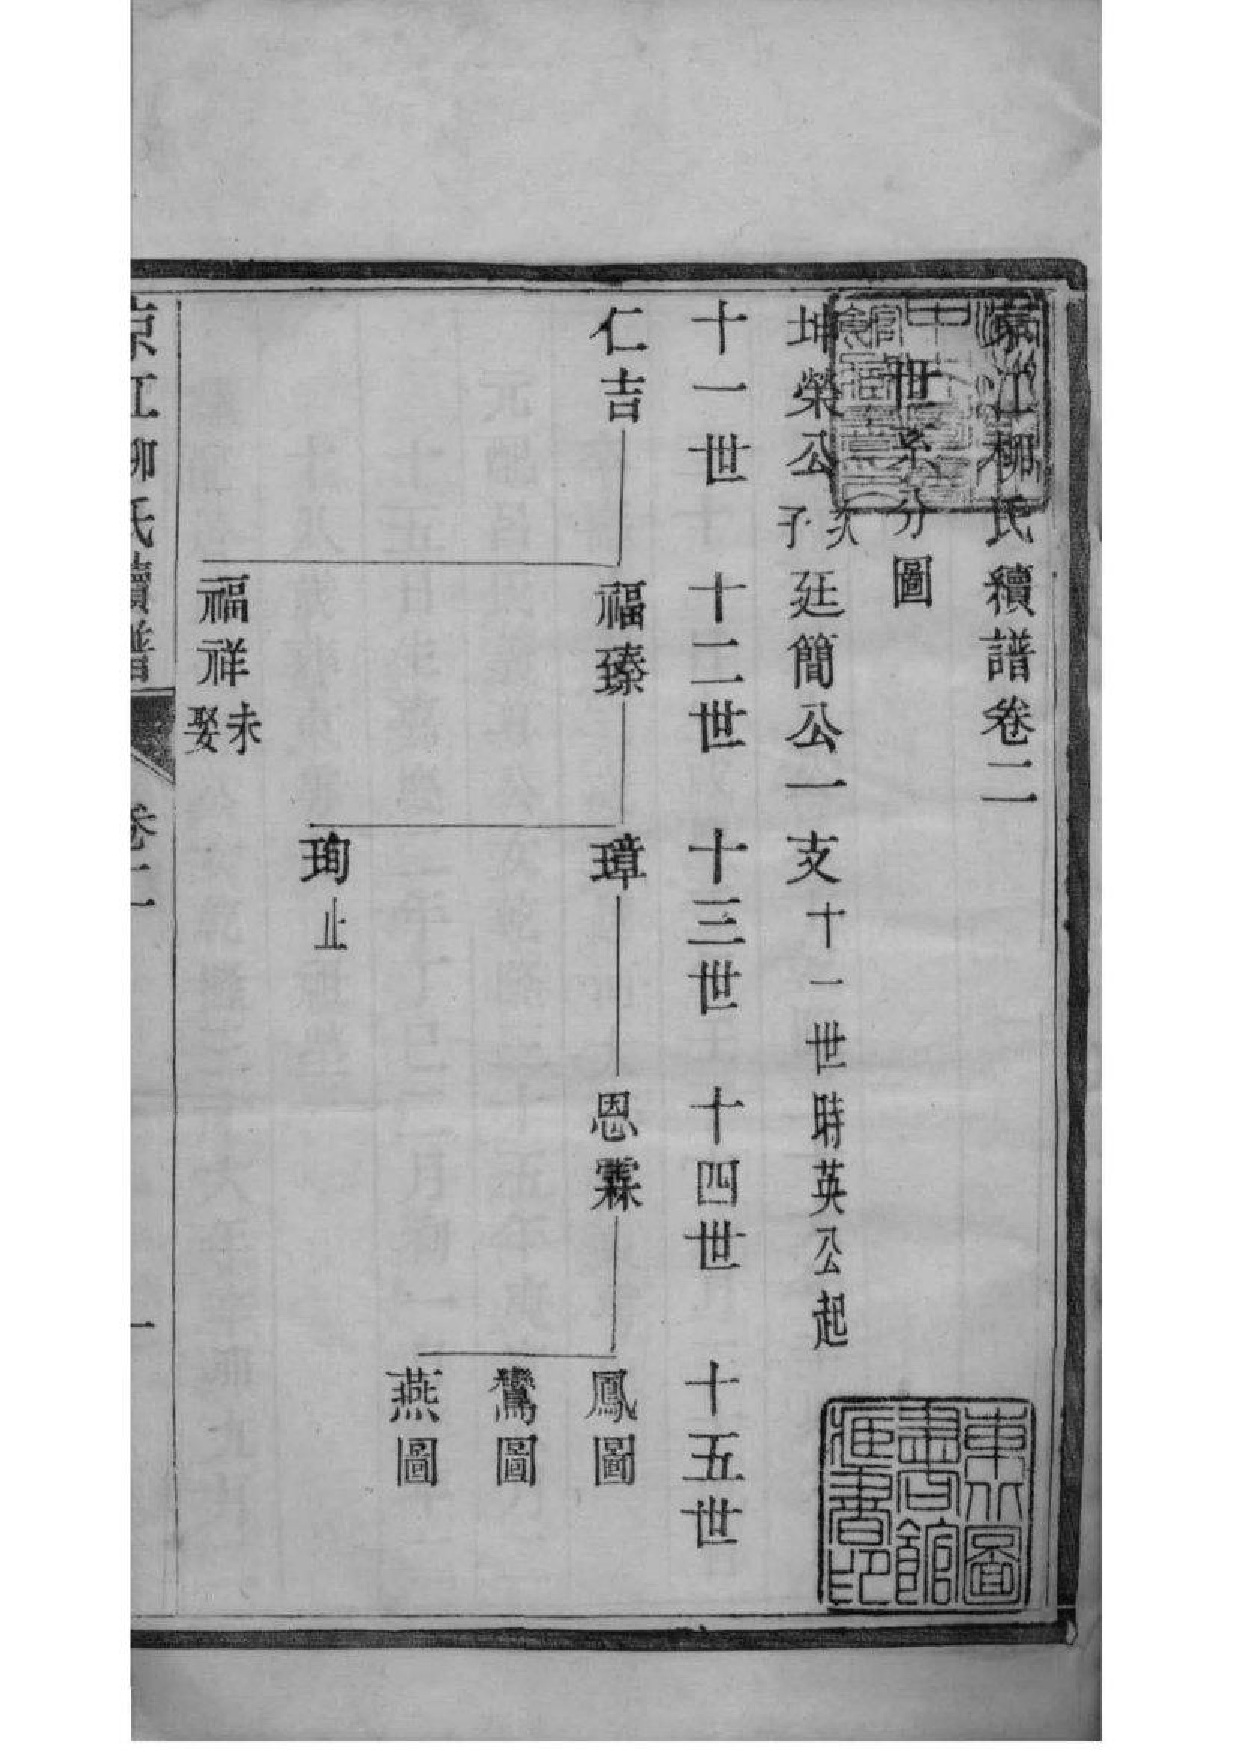 京江柳氏續譜卷二
世系分圖
坤榮公次子廷簡公一支十一世時英公起
十一世 十二世 十三世 十四世 十五世
仁吉 福臻 璋 恩霖 鳳圖
鸞圖
燕圖
珣止
福祥未娶
京江柳氏續譜 卷二 一
東北圖書館藏書印